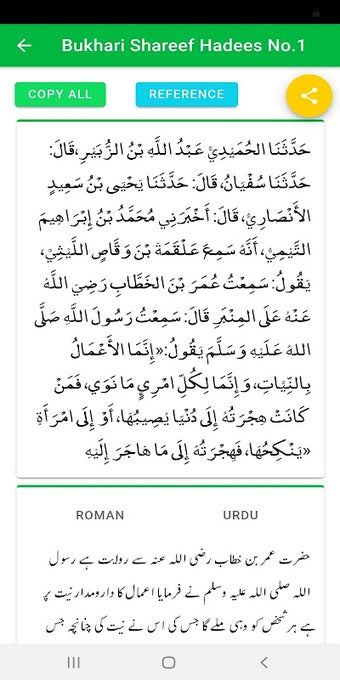 Bukhari Shareef Hadees No.1
COPY ALL
REFERENCE
حَدَّثَنَا الحُمَيْدِيُّ عَبْدُ اللَّهِ بْنُ الزُّبَيْرِ، قَالَ:
حَدَّثَنَا سُفْيَانُ، قَالَ: حَدَّثَنَا يَحْيَى بْنُ سَعِيدٍ
الأَنْصَارِيُّ، قَالَ: أَخْبَرَنِي مُحَمَّدُ بْنُ إِبْرَاهِيمَ
التَّيْمِيُّ، أَنَّهُ سَمِعَ عَلْقَمَةَ بْنَ وَقَّاصٍ اللَّيْثِيَّ،
يَقُولُ: سَمِعْتُ عُمَرَ بْنَ الخَطَّابِ رَضِيَ اللَّهُ
عَنْهُ عَلَى المِنْبَرِ قَالَ: سَمِعْتُ رَسُولَ اللَّهِ صَلَّى
اللهُ عَلَيْهِ وَسَلَّمَ يَقُولُ: «إِنَّمَا الأَعْمَالُ
بِالنِّيَّاتِ، وَإِنَّمَا لِكُلِّ امْرِئٍ مَا نَوَى، فَمَنْ
كَانَتْ هِجْرَتُهُ إِلَى دُنْيَا يُصِيبُهَا، أَوْ إِلَى امْرَأَةٍ
«يَنْكِحُهَا، فَهِجْرَتُهُ إِلَى مَا هَاجَرَ إِلَيْهِ
ROMAN
URDU
حضرت عمر بن خطاب رضی اللہ عنہ سے روایت ہے رسول
اللہ صلی اللہ علیہ وسلم نے فرمایا اعمال کا دارومدار نیت پر
ہے ہر شخص کو وہی ملے گا جس کی اس نے نیت کی چنانچہ جس